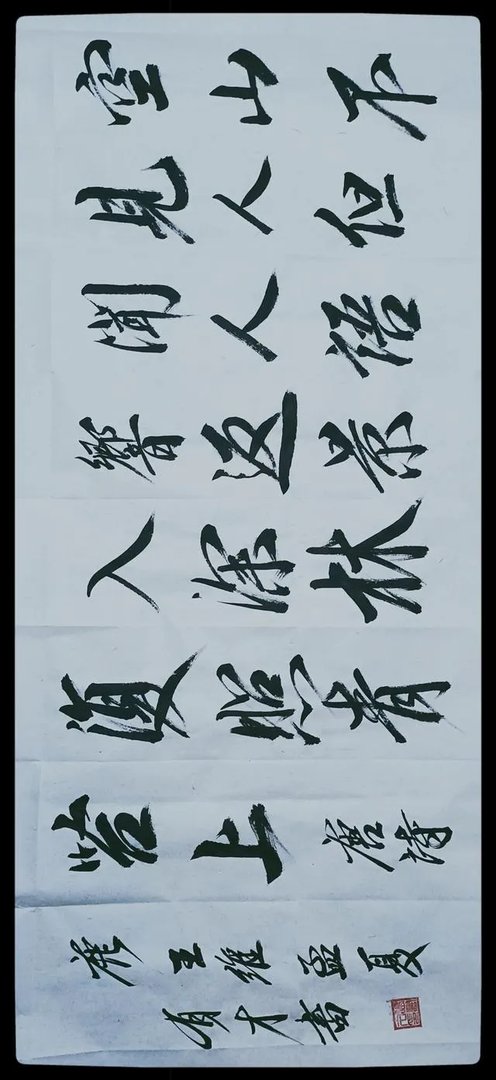 空山不
見人但
聞人語
響返景
入深林
復照青
苔上唐詩
王維孟夏
有才書